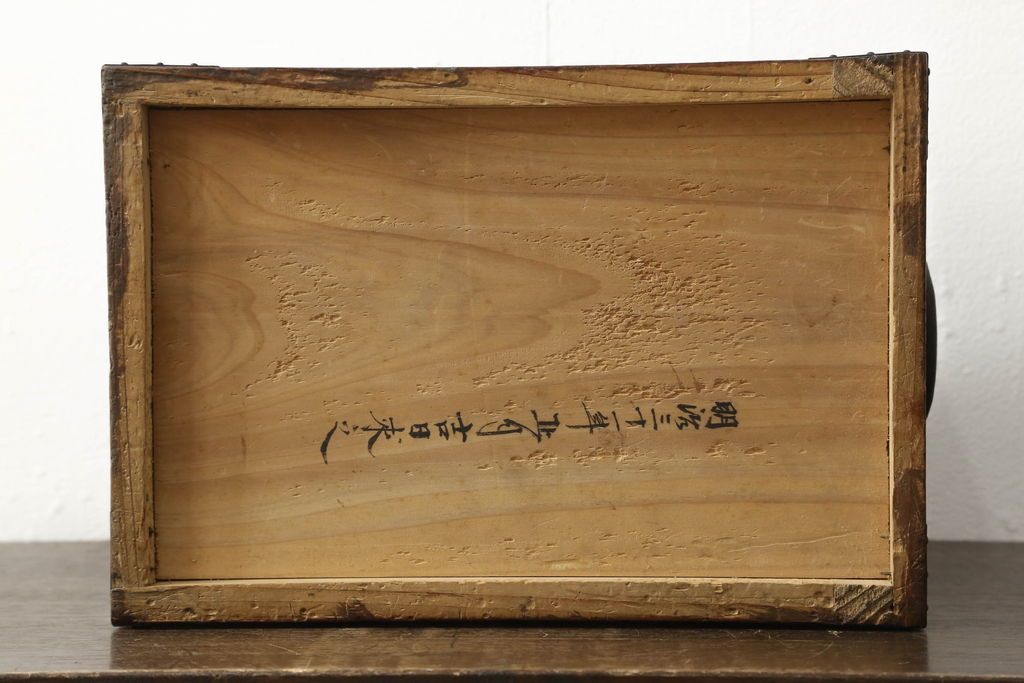 明治三十一年五月吉日求之